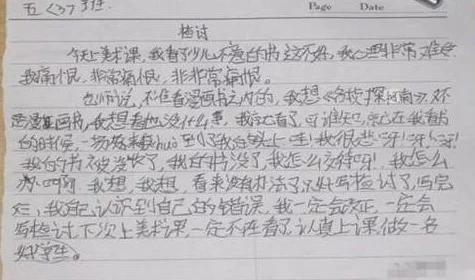 五〈3〉班
Page Date
检讨
今天上美术课，我看了少儿不宜的书这不好，我心理非常难受
我痛恨，非常痛恨，非非常痛恨。
老师说，不准看漫画书之内的，我想《名侦探柯南》又不
是漫画书，我想看也没什么事，我就看了，可谁知，就在我看书
的时候，一场灾难huò到了我的头上哇！我很悲呀！呀！呀！
我的书被没收了，我的书没了我怎么交待呀！我怎么
办呵啊 我想，我想，看来没有办法了只好写检讨了，写完
后，我自己认识到自己的错误，我一定会改正，一定会
写检讨下次上美术课一定不在看了，认真上课做一名
好学生。